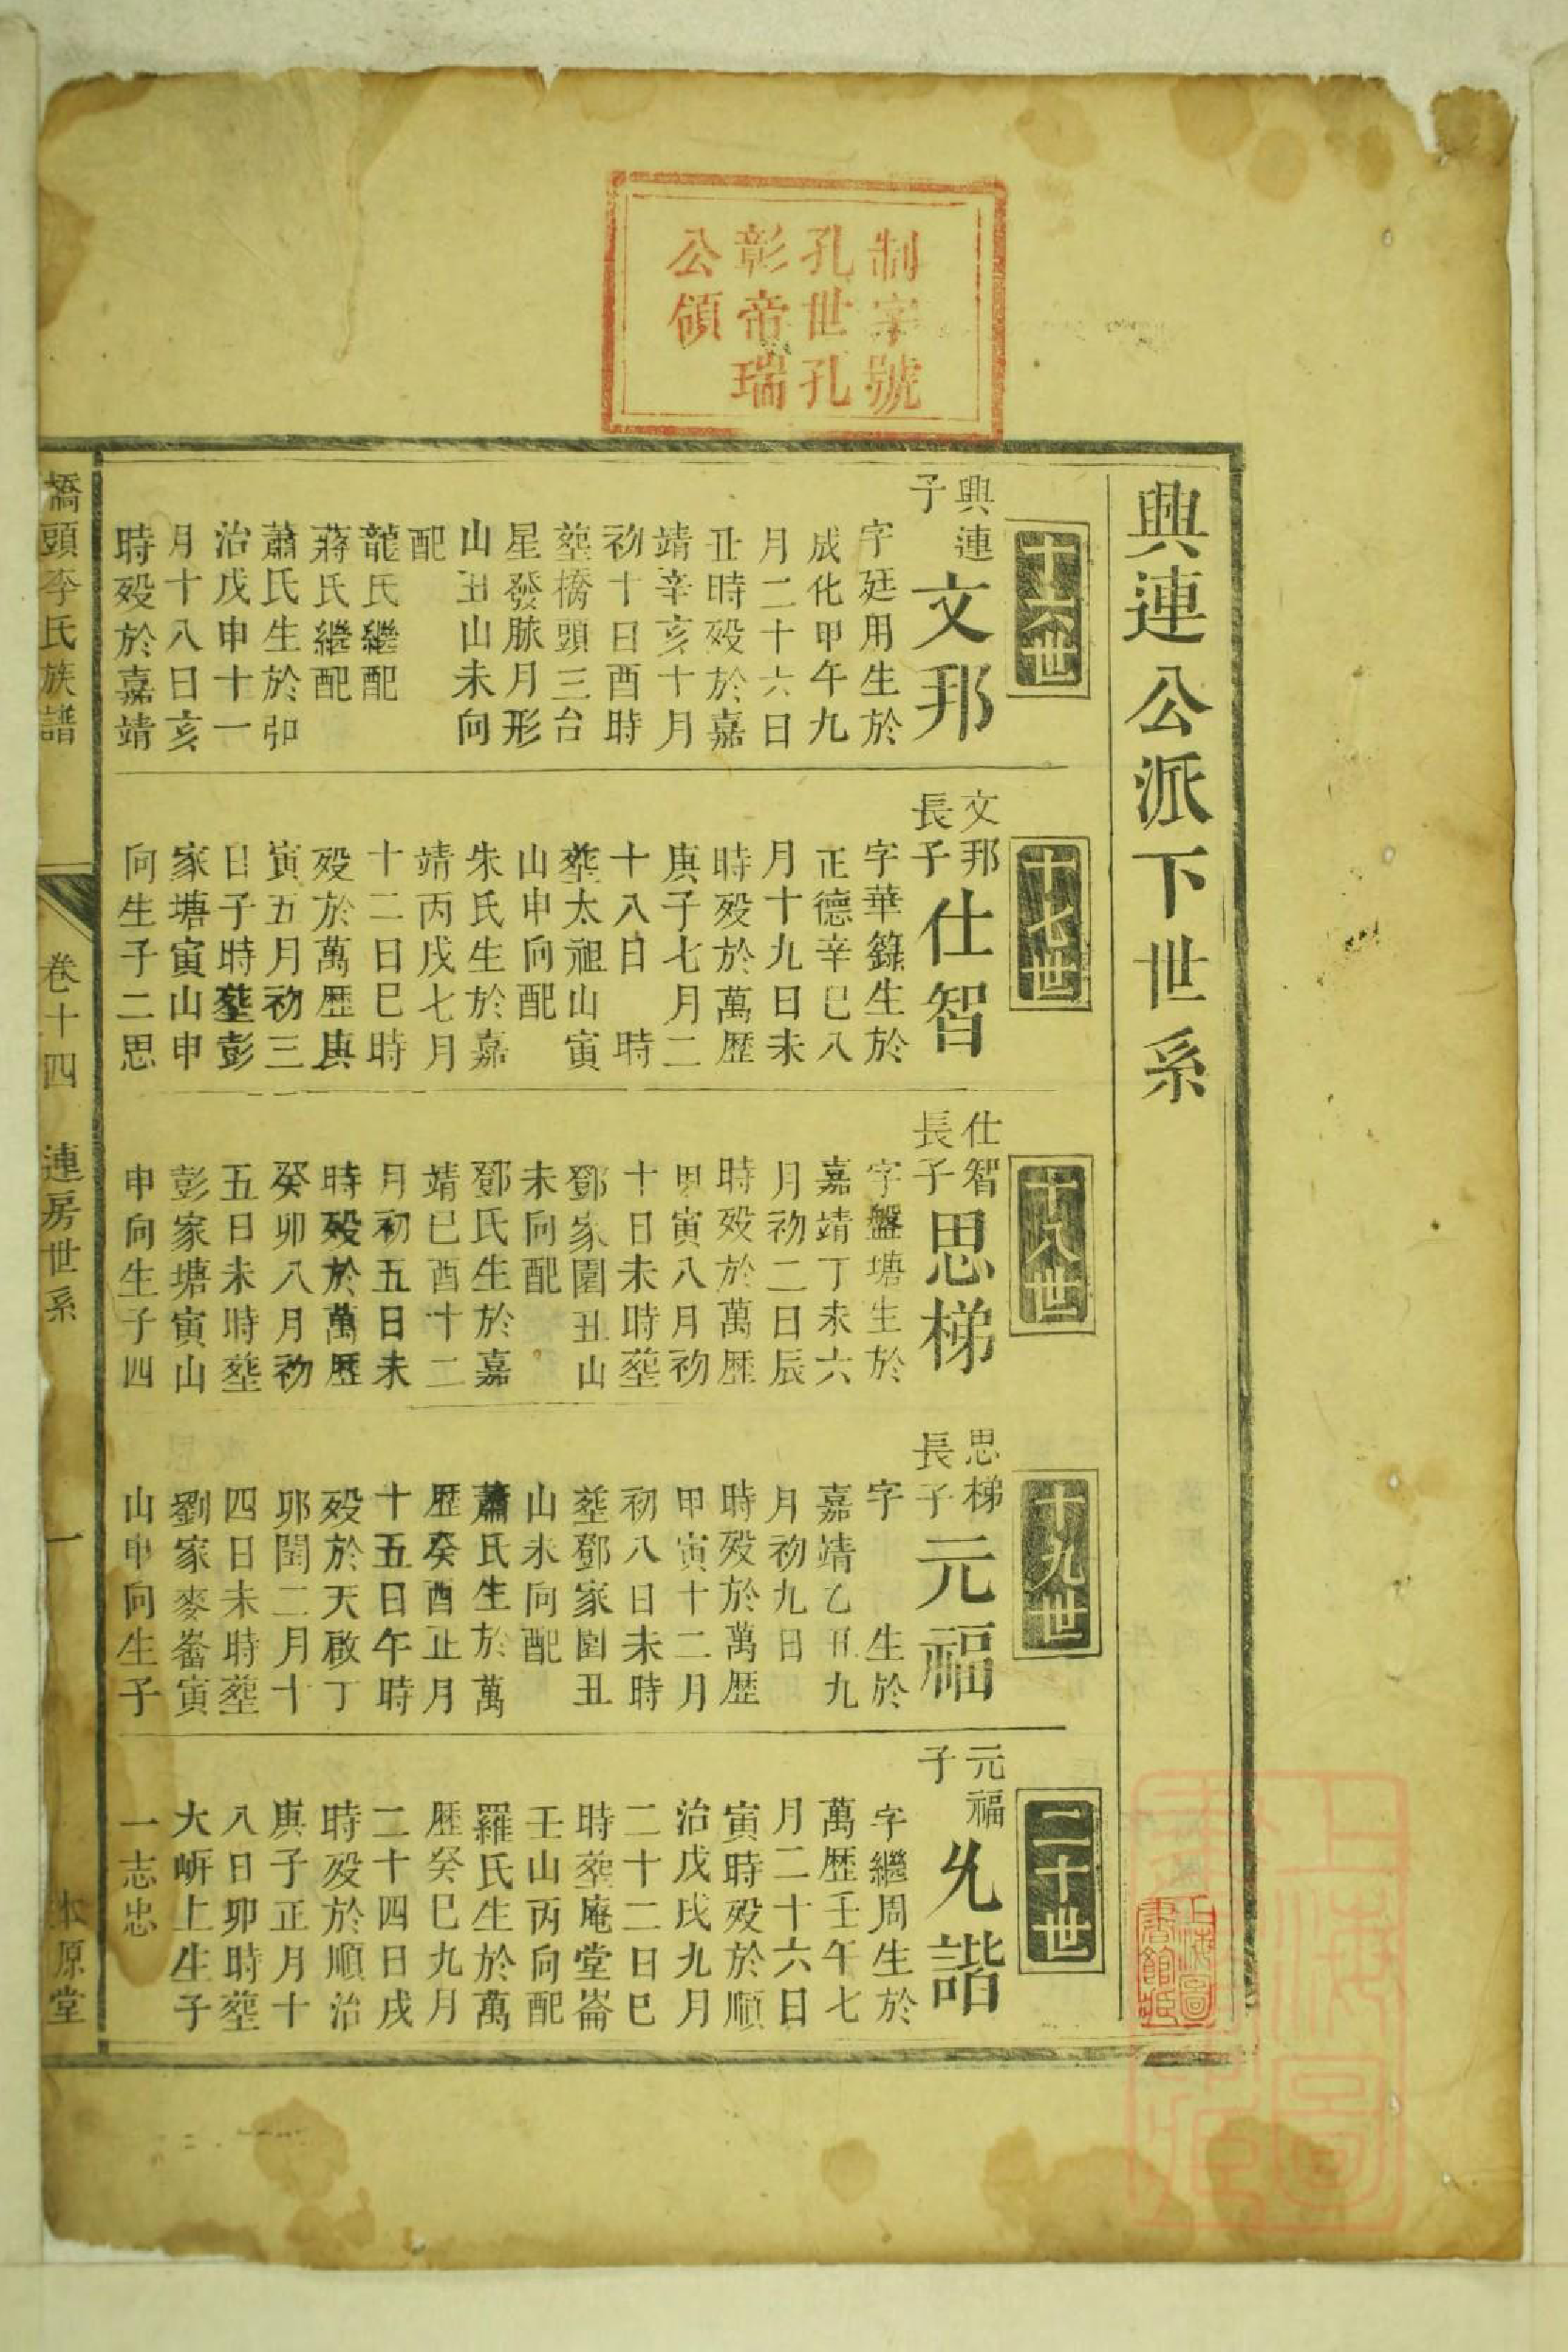 制字號
孔世孔
彰帝瑞
公領
興連公派下世系
十六世
興連
子
文邦
字廷用生於
成化甲午九
月二十六日
丑時歿於嘉
靖辛亥十月
初十日酉時
塟橋頭三台
星發脉月形
山丑山未向
配
龍氏繼配
蔣氏繼配
蕭氏生於弘
治戊申十一
月十八日亥
時歿於嘉靖
十七世
文邦
長子
仕智
字華籙生於
正德辛巳八
月十九日未
時歿於萬歷
庚子七月二
十八日 時
塟太祖山寅
山申向配
朱氏生於嘉
靖丙戌七月
十二日巳時
歿於萬歷庚
寅五月初三
日子時塟彭
家塘寅山申
向生子二思
十八世
仕智
長子
思梯
字盤塘生於
嘉靖丁未六
月初二日辰
時歿於萬歷
甲寅八月初
十日未時塟
鄧家園丑山
未向配
鄧氏生於嘉
靖巳酉十二
月初五日未
時歿於萬歷
癸卯八月初
五日未時塟
彭家塘寅山
申向生子四
十九世
思梯
長子
元福
字 生於
嘉靖乙丑九
月初九日
時歿於萬歷
甲寅十二月
初八日未時
塟鄧家園丑
山未向配
蕭氏生於萬
歷癸酉正月
十五日午時
歿於天啟丁
卯閏二月十
四日未時塟
劉家麥崙寅
山申向生子
二十世
元福
子
允諧
字繼周生於
萬歷壬午七
月二十六日
寅時歿於順
治戊戌九月
二十二日巳
時塟庵堂崙
壬山丙向配
羅氏生於萬
歷癸巳九月
二十四日戌
時歿於順治
庚子正月十
八日卯時塟
大岍上生子
一志忠
橋頭李氏族譜
卷十四
連房世系
一
本原堂
上海圖
書館藏